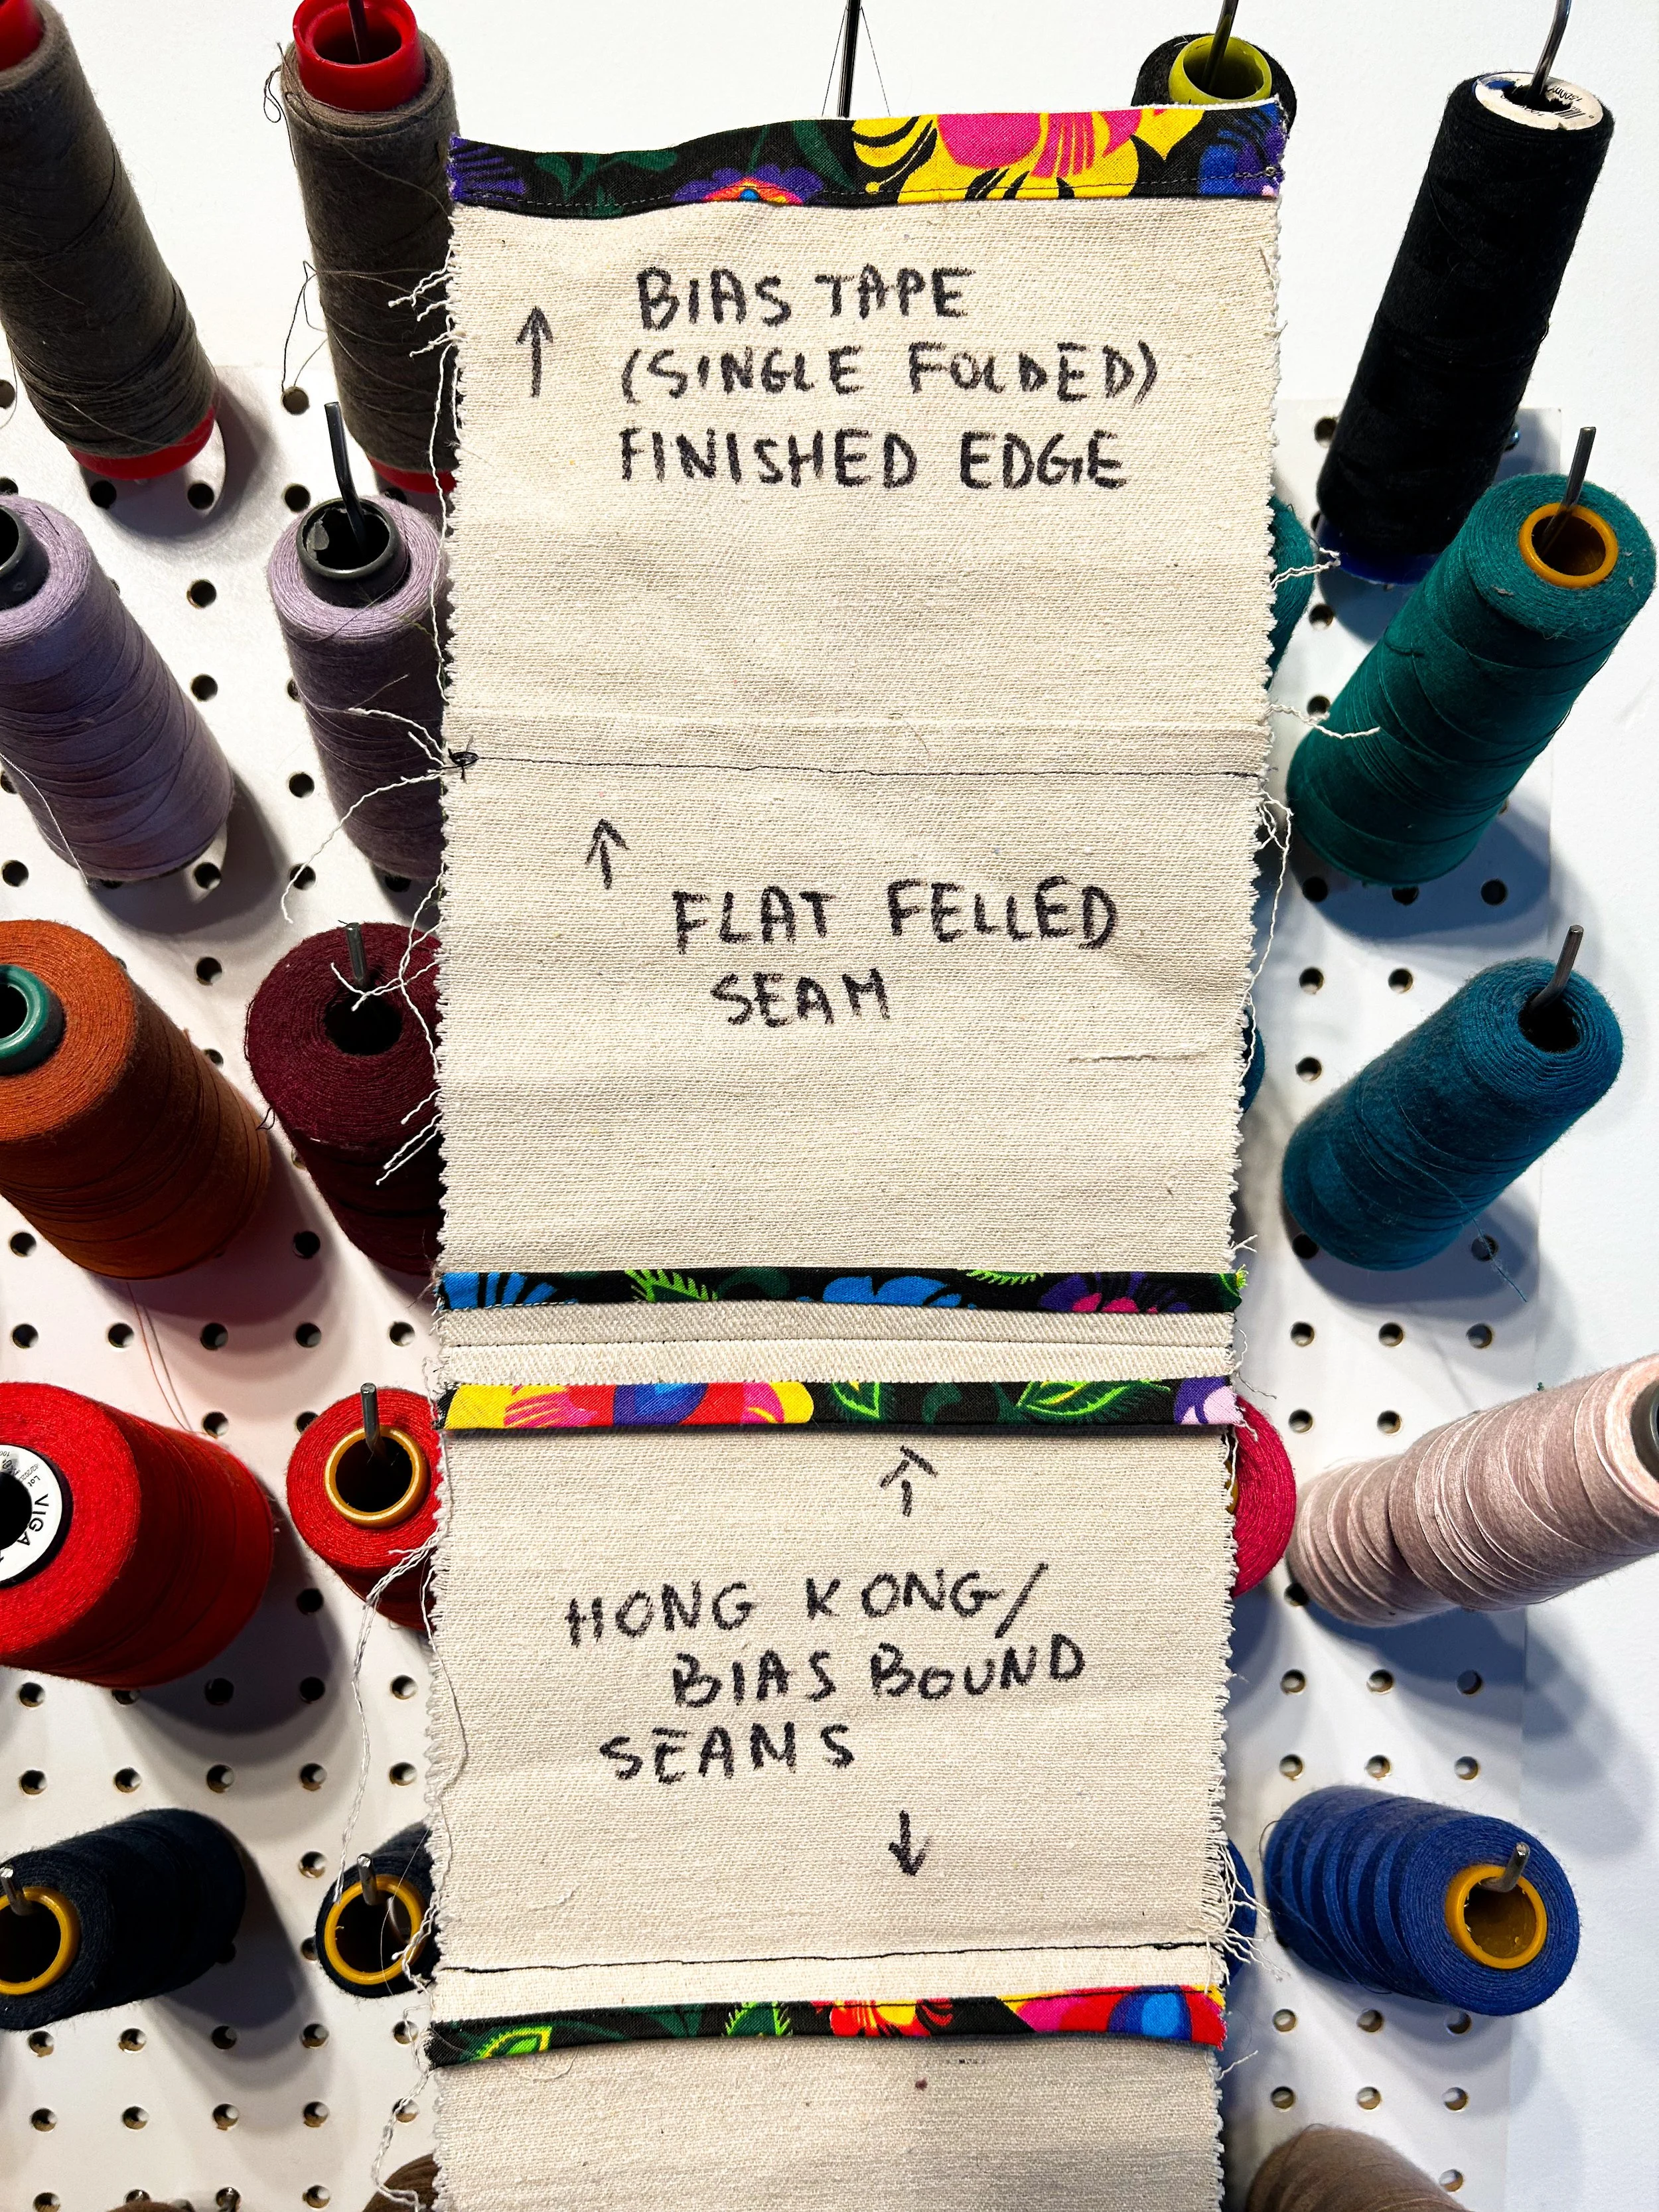 ↑ BIAS TAPE
(SINGLE FOLDED)
FINISHED EDGE
↑
FLAT FELLED
SEAM
↑
HONG KONG/
BIAS BOUND
SEAMS
↓
VIGA
Lot